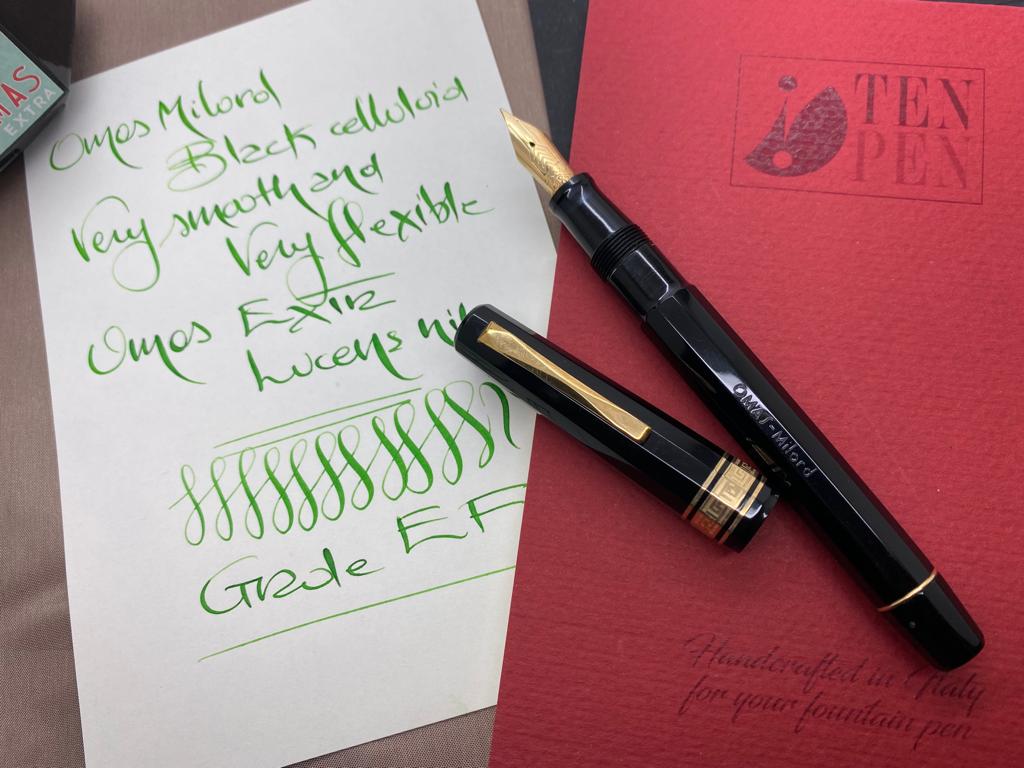 MAS
EXTRA
Omas Milord
Black celluloid
Very smooth and
Very flexible
Omas Extr
Lucens
Grade EF
TEN
PEN
OMAS-Milord
Handcrafted in Italy
for your fountain pen